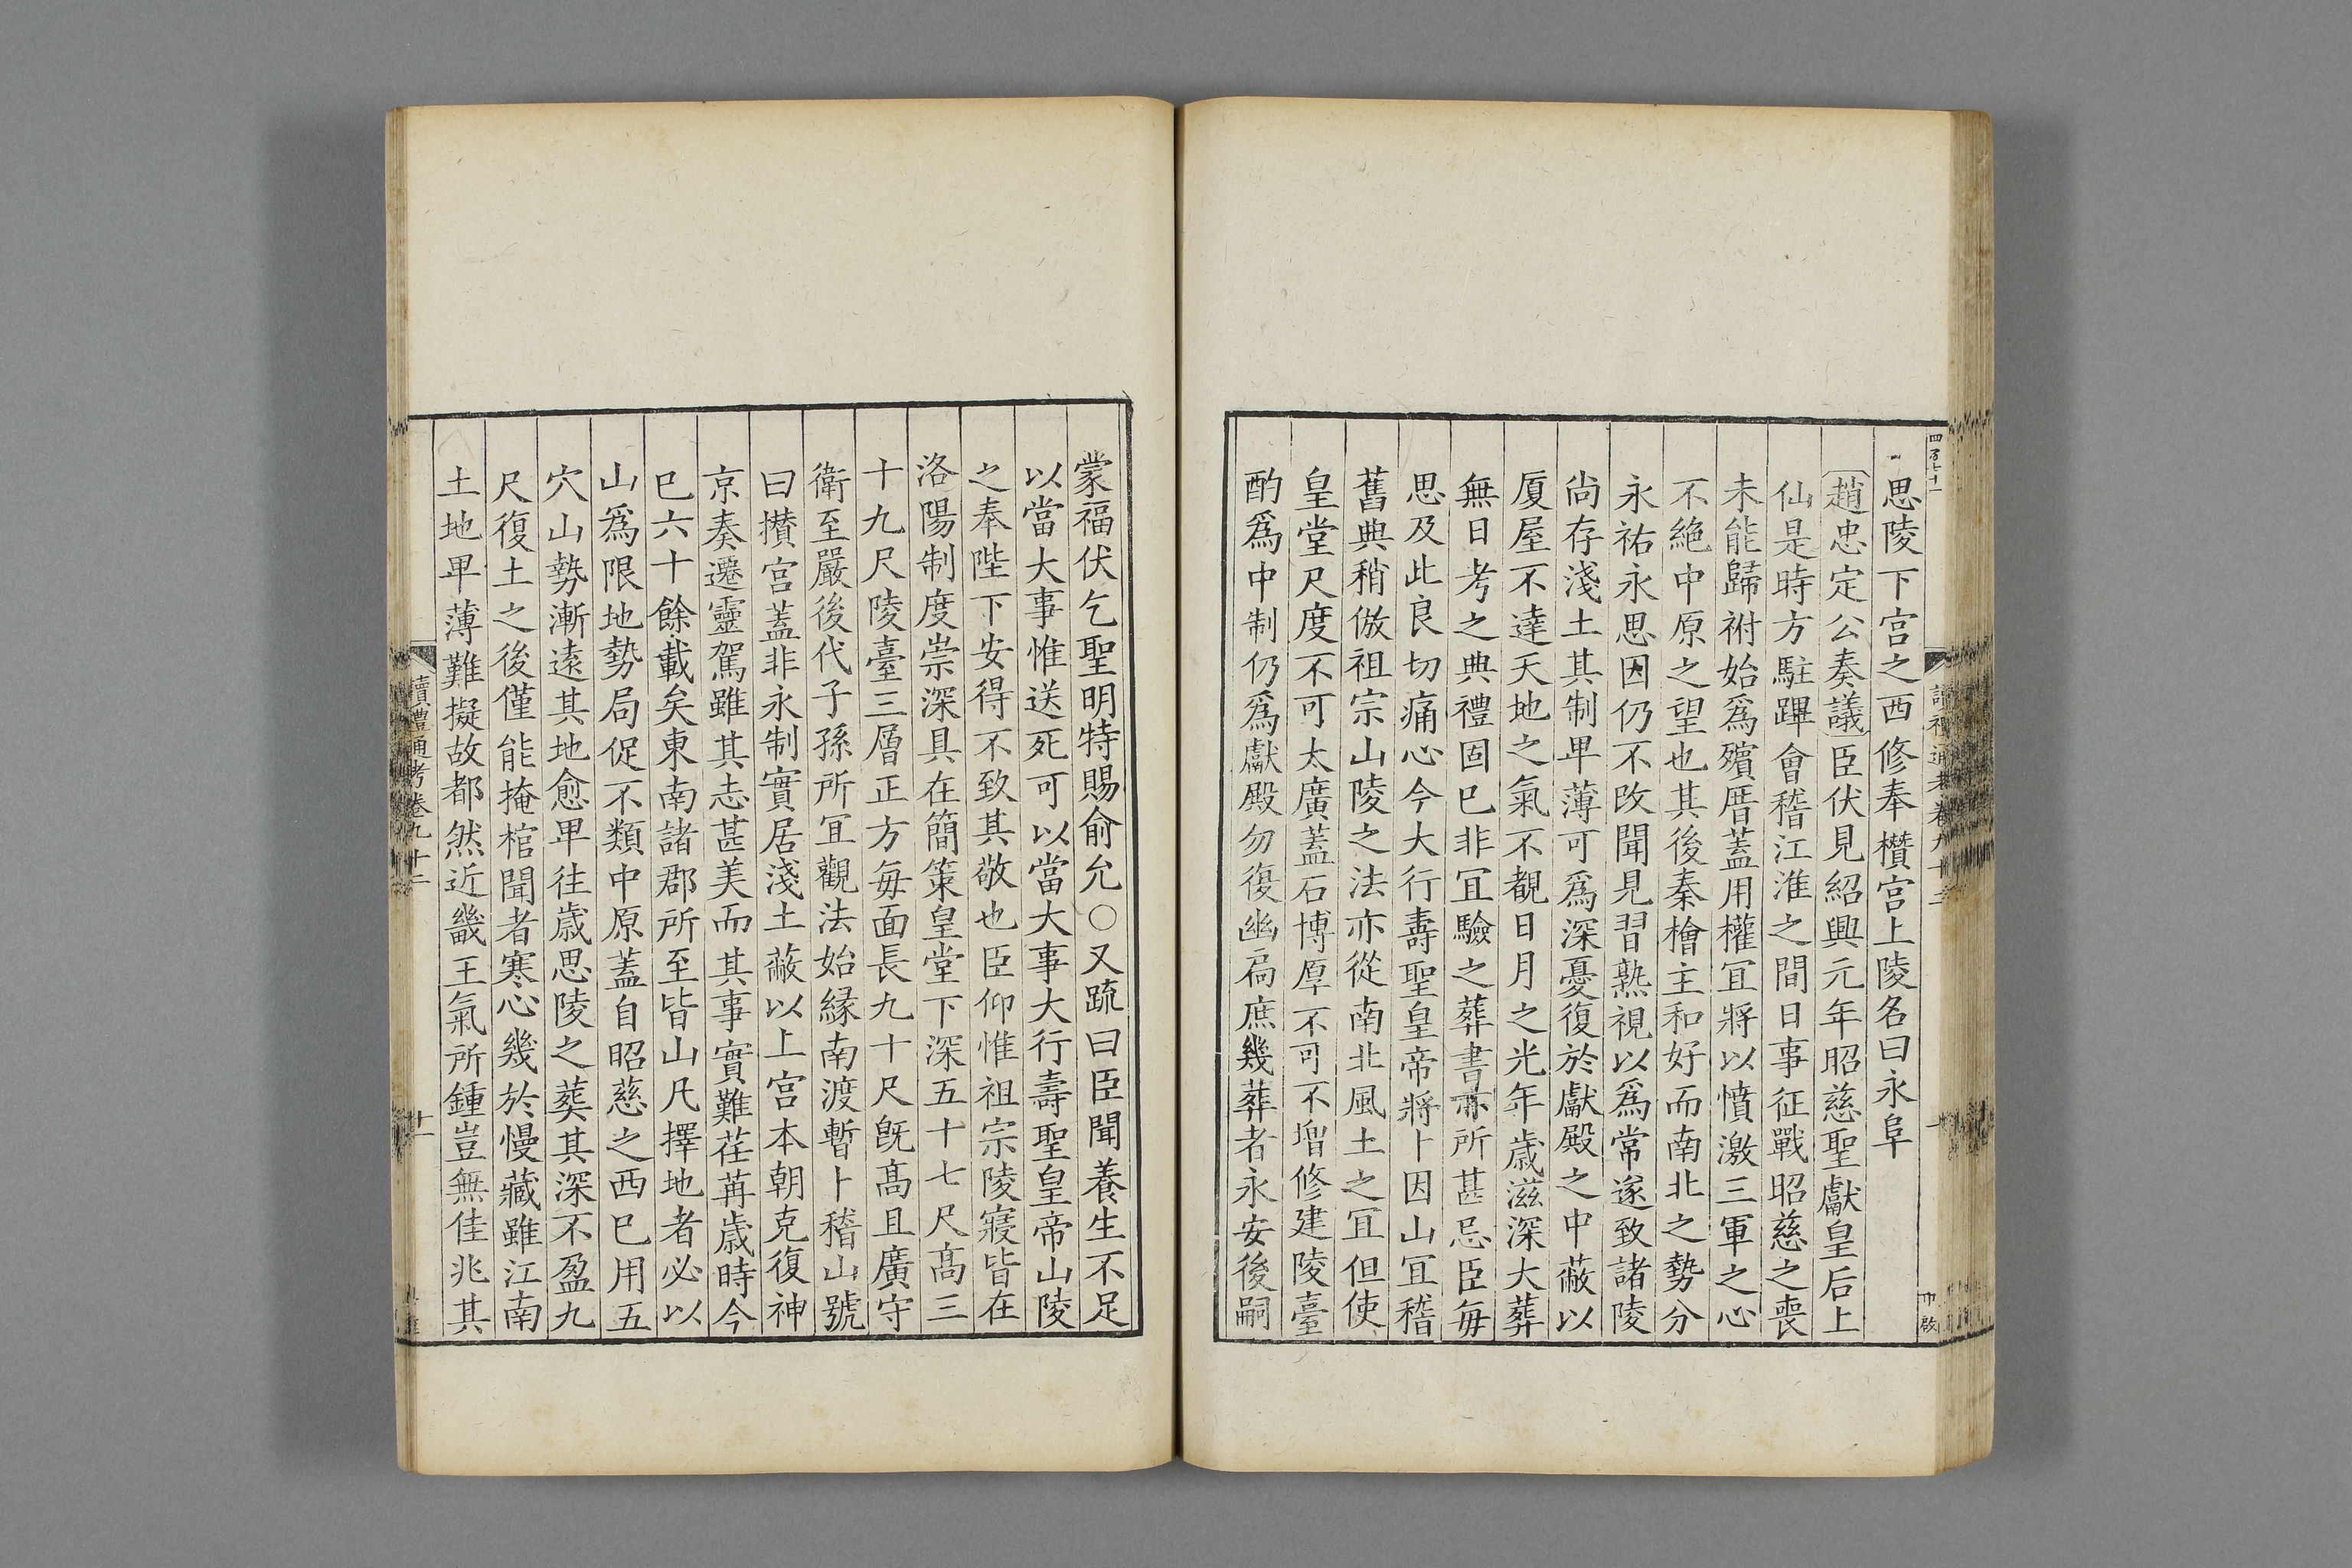 思陵下宫之西修奉欑宫上陵名曰永阜
趙忠定公奏議臣伏見紹興元年昭慈聖獻皇后上
仙是時方駐蹕會稽江淮之間日事征戰昭慈之喪
未能歸祔始爲殯厝蓋用權宜將以憤激三軍之心
不絶中原之望也其後秦檜主和好而南北之勢分
永祐永思因仍不改聞見習熟視以爲常遂致諸陵
尚存淺土其制卑薄可爲深憂復於獻殿之中蔽以
厦屋不達天地之氣不覩日月之光年歲滋深大葬
無日考之典禮固已非宜驗之葬書亦所甚忌臣每
思及此良切痛心今大行壽聖皇帝將卜因山宜稽
舊典稍倣祖宗山陵之法亦從南北風土之宜但使
皇堂尺度不可太廣蓋石博厚不可不增修建陵臺
酌爲中制仍爲獻殿勿復幽扃庶幾葬者永安後嗣
蒙福伏乞聖明特賜俞允○又疏曰臣聞養生不足
以當大事惟送死可以當大事大行壽聖皇帝山陵
之奉陛下安得不致其敬也臣仰惟祖宗陵寢皆在
洛陽制度崇深具在簡策皇堂下深五十七尺高三
十九尺陵臺三層正方每面長九十尺旣髙且廣守
衛至嚴後代子孫所宜觀法始縁南渡暫卜稽山號
曰攅宫蓋非永制實居淺土蔽以上宫本朝克復神
京奏遷靈駕雖其志甚美而其事實難荏苒歲時今
已六十餘載矣東南諸郡所至皆山凡擇地者必以
山爲限地勢局促不類中原蓋自昭慈之西已用五
穴山勢漸遠其地愈卑往歲思陵之葬其深不盈九
尺復土之後僅能掩棺聞者寒心幾於慢藏雖江南
土地卑薄難擬故都然近畿王氣所鍾豈無佳兆其
讀禮通考卷九十二
十一